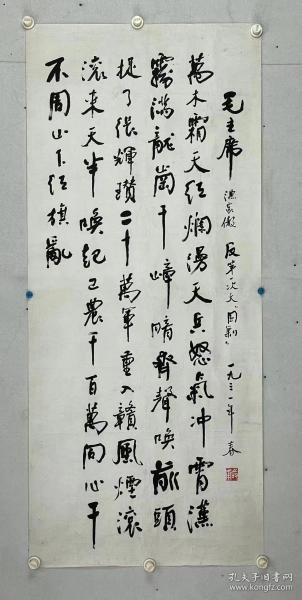 毛主席 漁家傲 反第一次大“围剿” 一九三一年春
萬木霜天红爛漫天兵怒氣冲霄漢
霧满龍岡千嶂暗齊聲唤前頭
捉了張輝瓚二十萬軍重入贛風煙滚
滚來天半唤起工農千百萬同心干
不周山下红旗亂
孔夫子旧书网